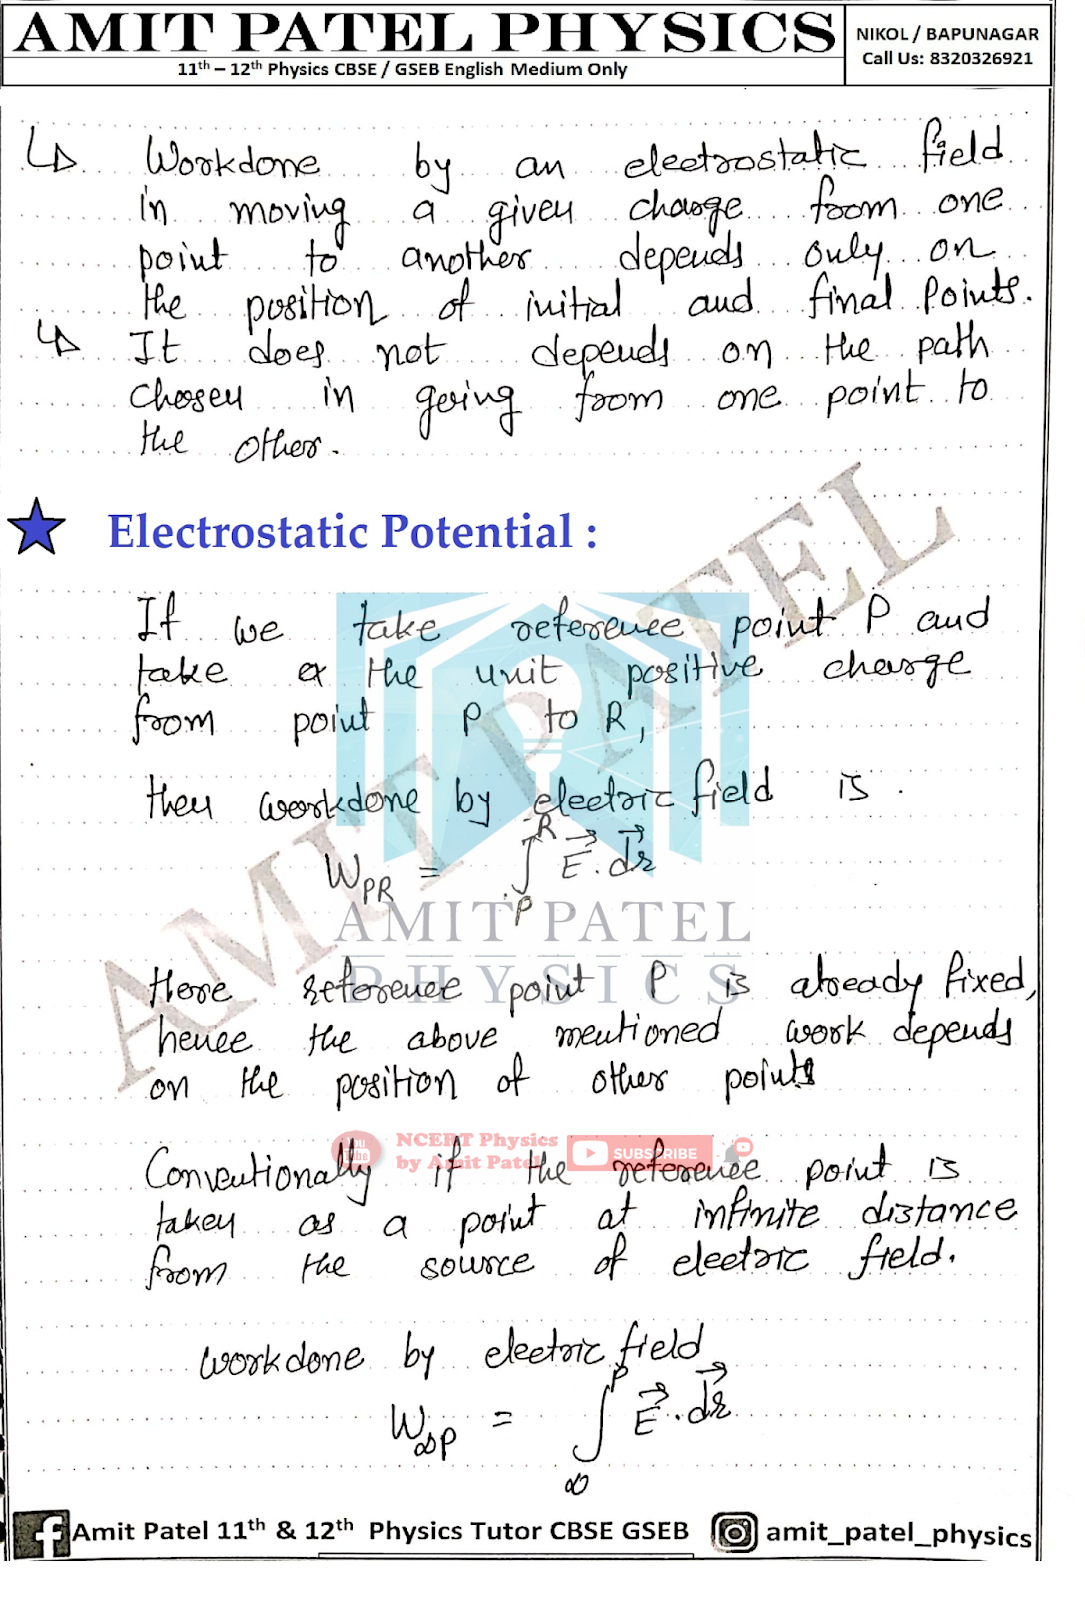 AMIT PATEL PHYSICS
11th – 12th Physics CBSE / GSEB English Medium Only
NIKOL / BAPUNAGAR
Call Us: 8320326921
↳ Workdone by an electrostatic field
in moving a given charge from one
point to another depends only on
the position of initial and final Points.
↳ It does not depends on the path
chosen in going from one point to
the other.
★ Electrostatic Potential :
If we take reference point P and
take the unit positive charge
from point P to R,
then workdone by electric field is .
W_PR = ∫_P^R E⃗ . dr⃗
AMIT PATEL
PHYSICS
AMIT PATEL
Here reference point P is already fixed,
hence the above mentioned work depends
on the position of other points
NCERT Physics
by Amit Patel
You Tube
SUBSCRIBE
Conventionally if the reference point is
taken as a point at infinite distance
from the source of electric field.
workdone by electric field
W_∞P = ∫_∞^P E⃗ . dr⃗
Amit Patel 11th & 12th Physics Tutor CBSE GSEB
amit_patel_physics